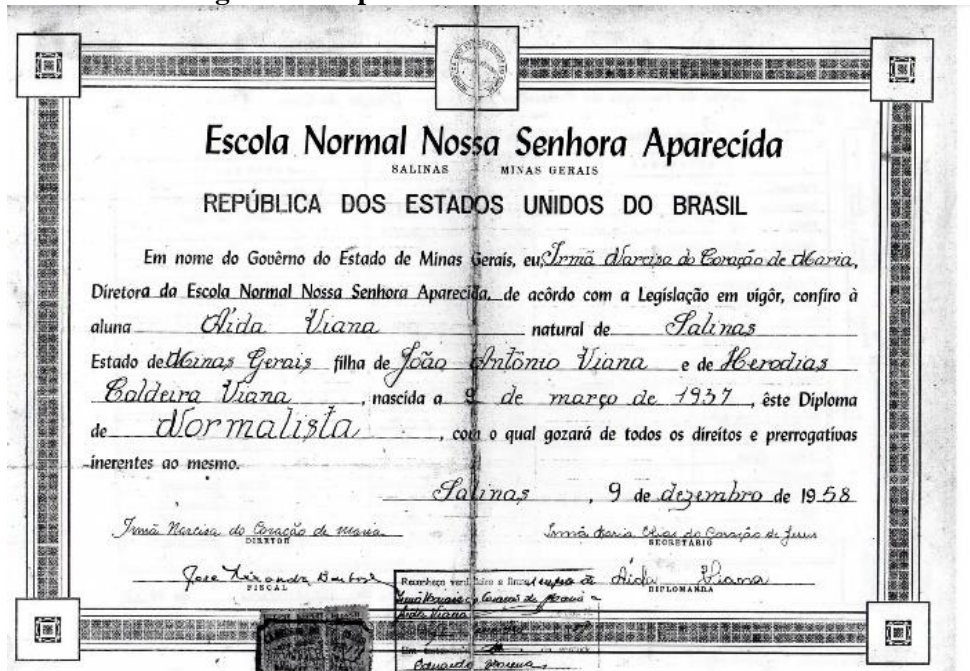 Escola Normal Nossa Senhora Aparecida
SALINAS MINAS GERAIS
REPÚBLICA DOS ESTADOS UNIDOS DO BRASIL
Em nome do Govêrno do Estado de Minas Gerais, eu, Irmã Narcisa do Coração de Maria,
Diretora da Escola Normal Nossa Senhora Aparecida, de acôrdo com a Legislação em vigôr, confiro à
aluna Aida Viana natural de Salinas
Estado de Minas Gerais filha de João Antônio Viana e de Herodias
Caldeira Viana, nascida a 9 de março de 1937, êste Diploma
de Normalista, com o qual gozará de todos os direitos e prerrogativas
inerentes ao mesmo.
Salinas, 9 de dezembro de 1958
Irmã Narcisa do Coração de Maria
DIRETOR
Irmã Maria do Coração de Jesus
SECRETÁRIO
José Miranda
FISCAL
Aida Viana
DIPLOMANDA
Reconheço a firma de
Irmã Narcisa do Coração de Maria e
Aida Viana
Eduardo